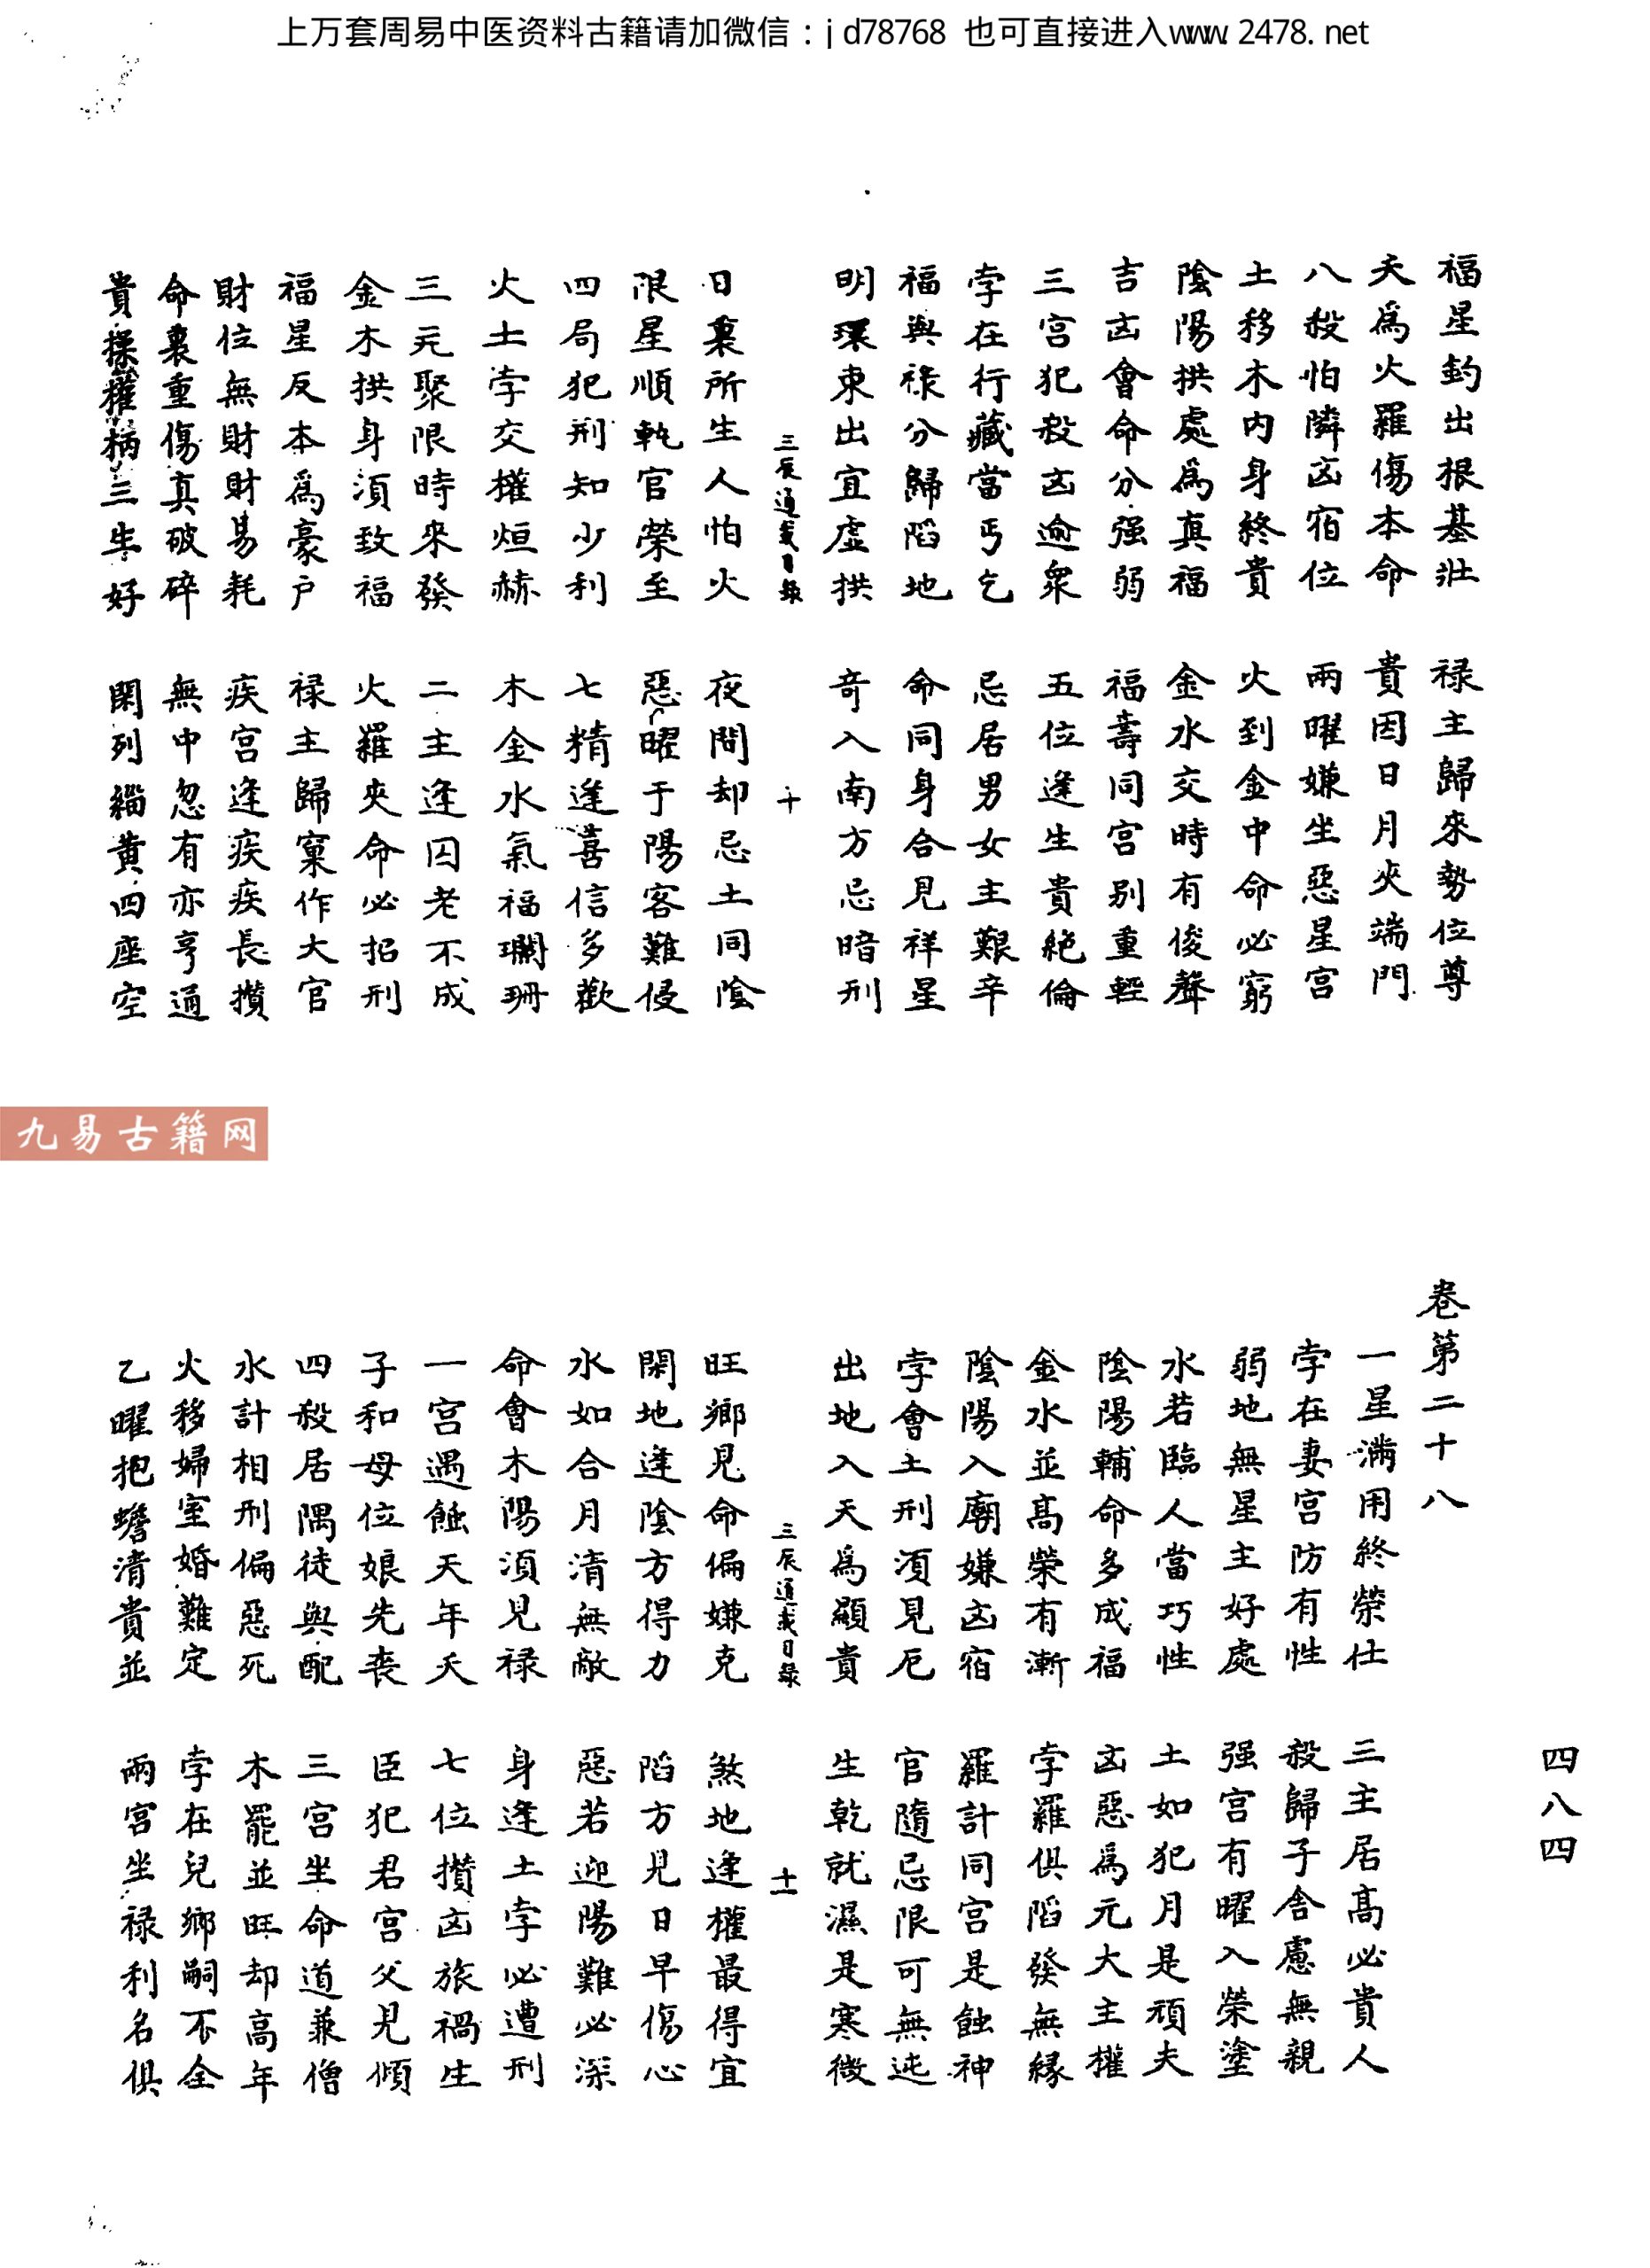 上万套周易中医资料古籍请加微信：jd78768 也可直接进入www.2478.net
福星釣出根基壯 禄主歸來勢位尊
天爲火羅傷本命 貴因日月夾端門
八殺怕隣凶宿位 兩曜嫌坐惡星宫
土移木内身終貴 火到金中命必窮
陰陽拱處爲真福 金水交時有俊聲
吉凶會命分强弱 福壽同宫别重輕
三宫犯殺凶逾衆 五位逢生貴絶倫
孛在行藏當丐乞 忌居男女主艱辛
福與禄分歸陷地 命同身合見祥星
明環東出宜虚拱 奇入南方忌暗刑
三辰通載目録 十
日裏所生人怕火 夜間却忌土同陰
限星順軌官榮至 惡曜于陽客難侵
四局犯刑知少利 七精逢喜信多歡
火土孛交權烜赫 木金水氣福斕珊
三元聚限時來發 二主逢囚老不成
金木拱身須致福 火羅夾命必招刑
福星反本爲豪户 禄主歸窠作大官
財位無財財易耗 疾宫逢疾疾長攅
命裏重傷真破碎 無中忽有亦亨通
貴操權柄三生好 閑列緇黄四座空
九易古籍网
卷第二十八
四八四
一星滿用終榮仕 三主居高必貴人
孛在妻宫防有性 殺歸子舍慮無親
弱地無星主好處 强宫有曜入榮塗
水若臨人當巧性 土如犯月是頑夫
陰陽輔命多成福 凶惡爲元大主權
金水並高榮有漸 孛羅俱陷發無縁
陰陽入廟嫌凶宿 羅計同宫是蝕神
孛會土刑須見厄 官隨忌限可無迍
出地入天爲顯貴 生乾就濕是寒微
三辰通載目録 十一
旺鄉見命偏嫌克 煞地逢權最得宜
閑地逢陰方得力 陷方見日早傷心
水如合月清無敵 惡若迎陽難必深
命會木陽須見禄 身逢土孛必遭刑
一宫遇蝕天年夭 七位攅凶旅禍生
子和母位娘先丧 臣犯君宫父見傾
四殺居隅徒與配 三宫坐命道兼僧
水計相刑偏惡死 木罷並旺却高年
火移婦室婚難定 孛在兒鄉嗣不全
乙曜抱蟾清貴並 兩宫坐禄利名俱